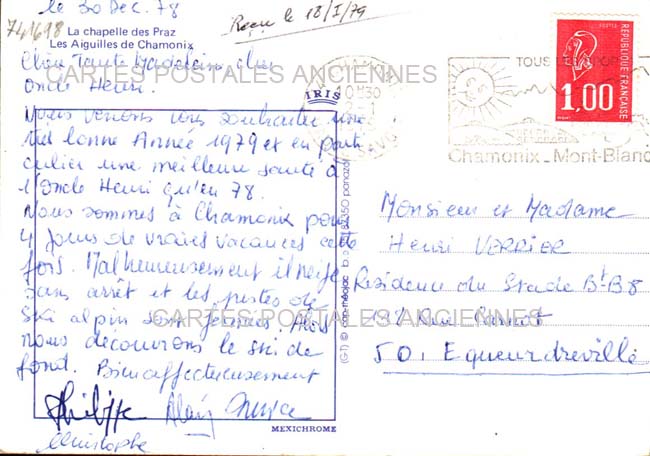 le 30 Dec. 78
Reçu le 18/I/79
741698
La chapelle des Praz
Les Aiguilles de Chamonix
Chère Tante Madeleine, cher
Oncle Henri.
CARTES POSTALES ANCIENNES
IRIS
Nous venons vous souhaiter une
très bonne Année 1979 et en parti
culier une meilleure santé à
l'Oncle Henri qu'en 78.
Nous sommes à Chamonix pour
4 jours de vraies vacances cette
fois. Malheureusement il neige
sans arrêt et les pistes de
ski alpin sont fermées. Alors
nous découvrons le ski de
fond. Bien affectueusement
Philippe Alain
Christophe
MEXICHROME
CARTES POSTALES ANCIENNES
REPUBLIQUE FRANÇAISE
1,00
Chamonix - Mont-Blanc
Monsieur et Madame
Henri VERRIER
Residence du Stade Bt B8
Rue
50. Equeurdreville